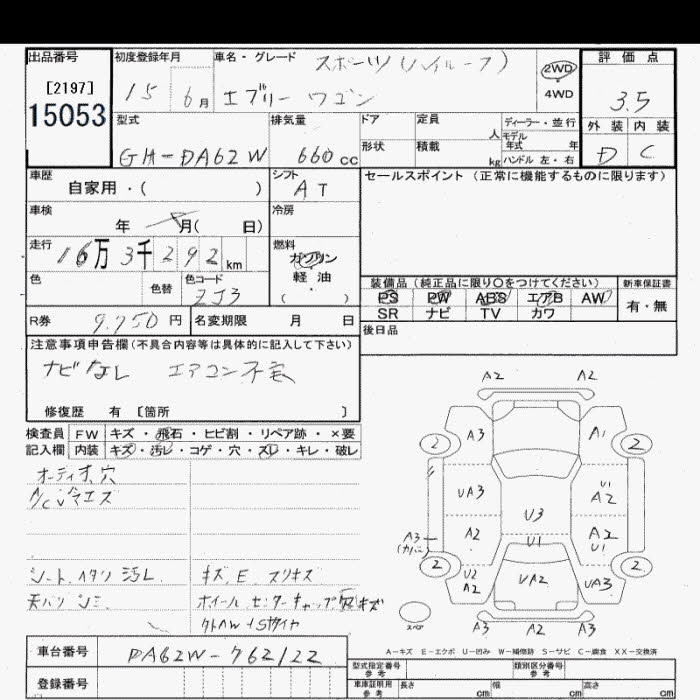 出品番号 初度登録年月 車名・グレード スポーツ(ハイルーフ) 2WD 4WD 評価点
[2197] 15 6月 エブリー ワゴン 3.5
15053
型式 排気量 ドア 定員 人 ディーラー・並行 外装 内装
モデル年式 年
GH-DA62W 660cc 形状 積載 kg ハンドル 左・右 D C
車歴 シフト セールスポイント (正常に機能するものに限ります)
自家用・( ) AT
車検 年 月( 日) 冷房
走行 16万3千292km 燃料 ガソリン
軽油
( ・ )
色 色替 色コード ZJ3
装備品 (純正品に限り○をつけてください) 新車保証書
PS PW ABS エアB AW 有・無
SR ナビ TV カワ
R券 9.750円 名変期限 月 日 後日品
注意事項申告欄(不具合内容等は具体的に記入して下さい)
ナビなし エアコン不良
修復歴 有 [箇所 ]
検査員 FW キズ・飛石・ヒビ割・リペア跡・×要
記入欄 内装 キズ・汚レ・コゲ・穴・スレ・キレ・破レ
オーディオ穴
A/C冷エズ
シート ヘタリ 汚レ キズ、E、スリキズ
天バリ シミ ホイール センターキャップ欠 キズ
外AW+Sタイヤ
A2 A2
A3 A1
2 2
UA3 U3 U1 A2
A3 (カバー) A2 U1 A2 U1
2 2
U2 A2 UA2 UA3
スペア A3 A2 A3
A-キズ E-エクボ U-凹み W-補修跡 S-サビ C-腐食 XX-交換済
車台番号 DA62W-762122
登録番号
型式指定番号 参考 類別区分番号 参考
車庫証明用 参考 長さ cm 幅 cm 高さ cm